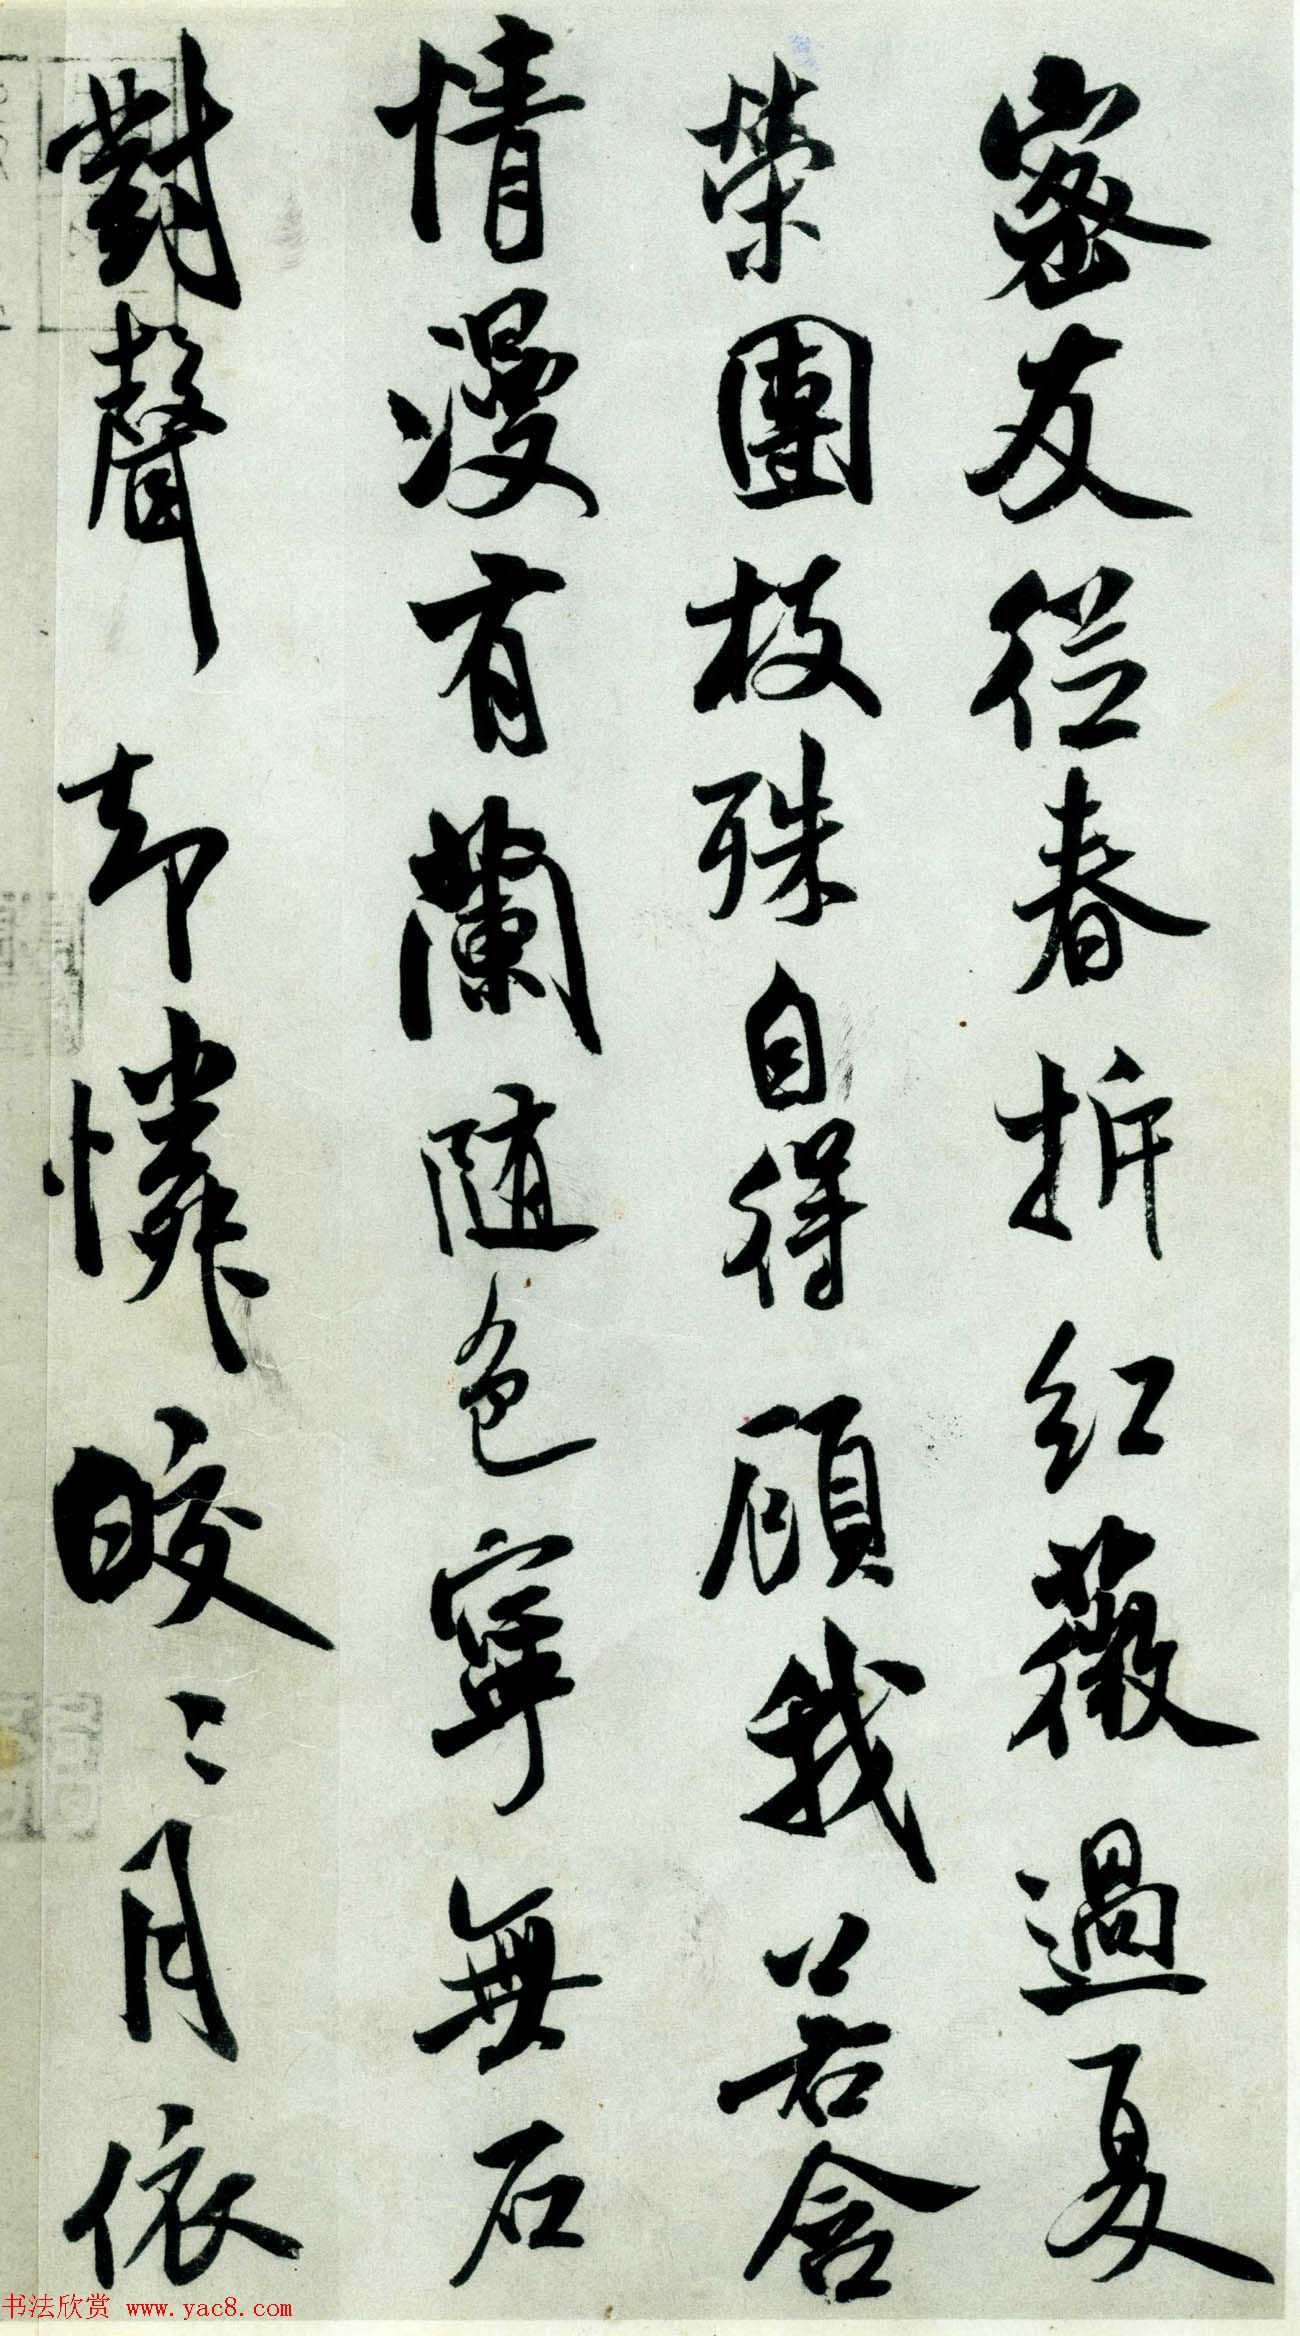 密友従春拆紅薇過夏
榮團枝殊自得顧我若含
情漫有蘭随色寧無石
對聲却憐皎〻月依
书法欣赏 www.yac8.com